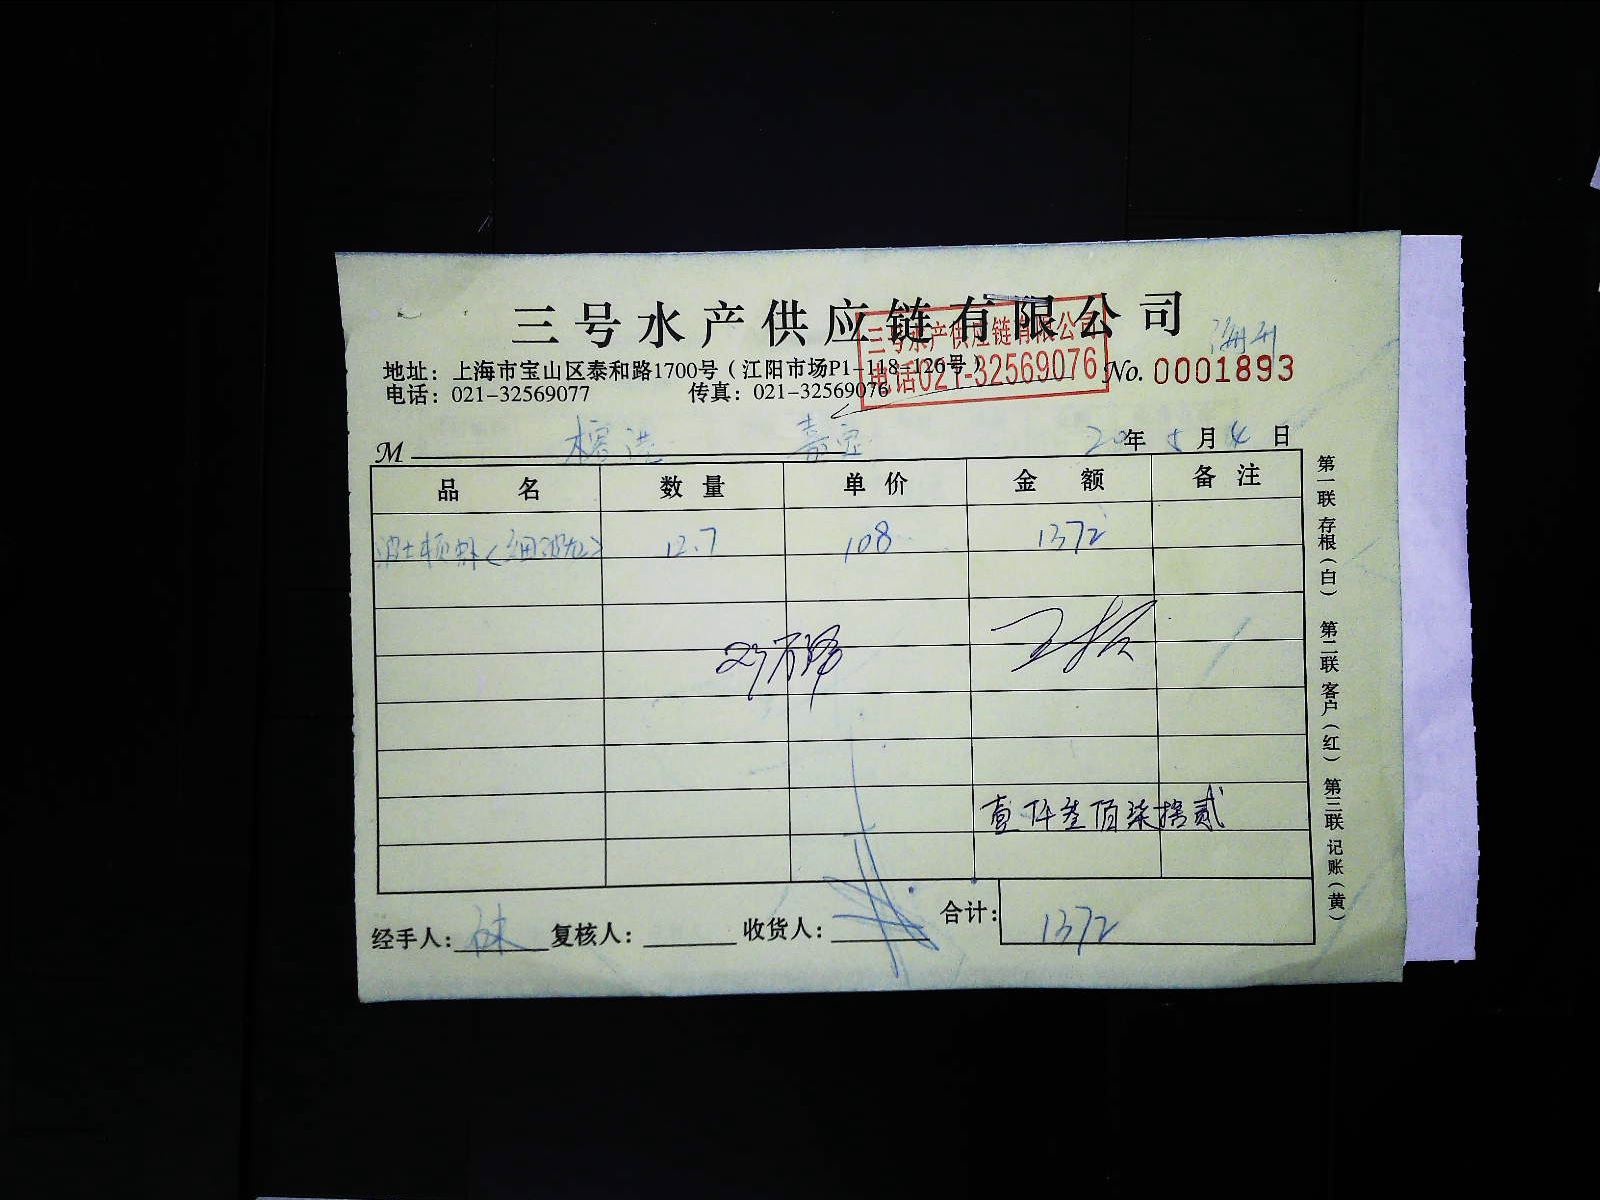 三号水产供应链有限公司
三号水产供应链有限公司
电话021-32569076
地址：上海市宝山区泰和路1700号（江阳市场P1-118-126号）
No. 0001893
电话：021-32569077 传真：021-32569076
M 嘉定 20年 5月 4日
品名 数量 单价 金额 备注
12.7 108 1372
壹仟叁佰柒拾贰
经手人： 复核人： 收货人： 合计： 1372
第一联 存根（白） 第二联 客户（红） 第三联 记账（黄）